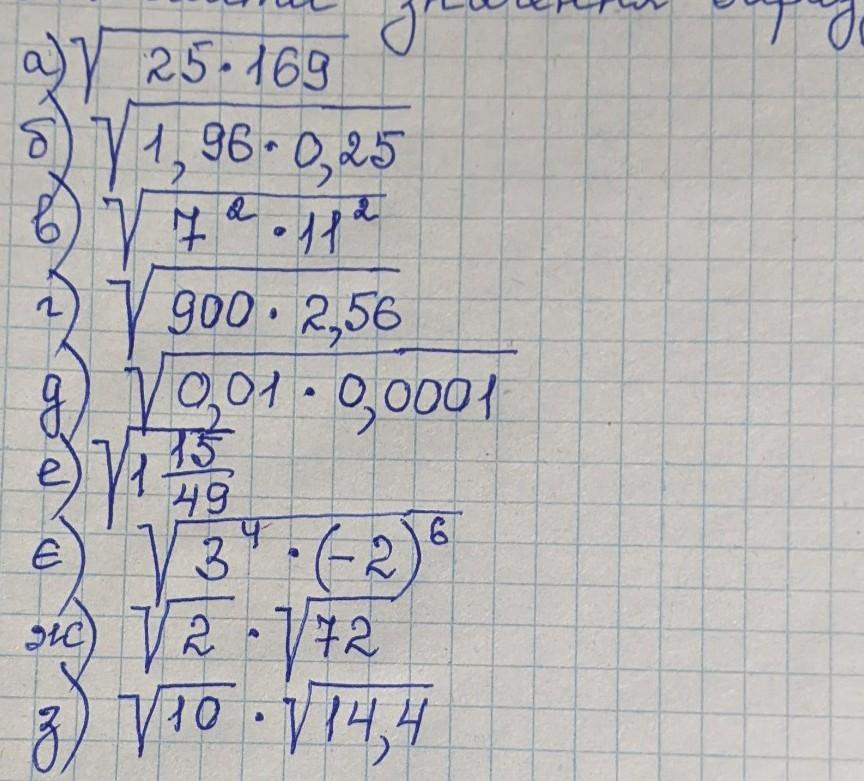 значення
а) √25·169
б) √1,96·0,25
в) √7²·11²
г) √900·2,56
д) √0,01·0,0001
е) √1 15/49
є) √3⁴·(-2)⁶
ж) √2·√72
з) √10·√14,4